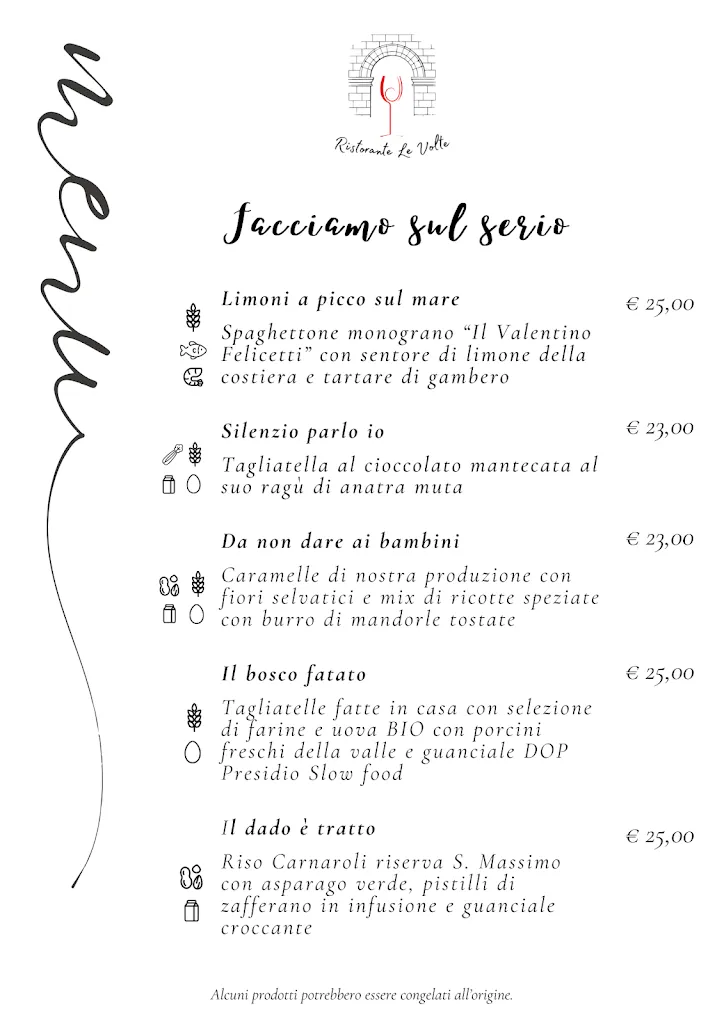 menu
Ristorante Le Volte
Facciamo sul serio
Limoni a picco sul mare
€ 25,00
Spaghettone monograno “Il Valentino
Felicetti” con sentore di limone della
costiera e tartare di gambero
Silenzio parlo io
€ 23,00
Tagliatella al cioccolato mantecata al
suo ragù di anatra muta
Da non dare ai bambini
€ 23,00
Caramelle di nostra produzione con
fiori selvatici e mix di ricotte speziate
con burro di mandorle tostate
Il bosco fatato
€ 25,00
Tagliatelle fatte in casa con selezione
di farine e uova BIO con porcini
freschi della valle e guanciale DOP
Presidio Slow food
Il dado è tratto
€ 25,00
Riso Carnaroli riserva S. Massimo
con asparago verde, pistilli di
zafferano in infusione e guanciale
croccante
Alcuni prodotti potrebbero essere congelati all'origine.